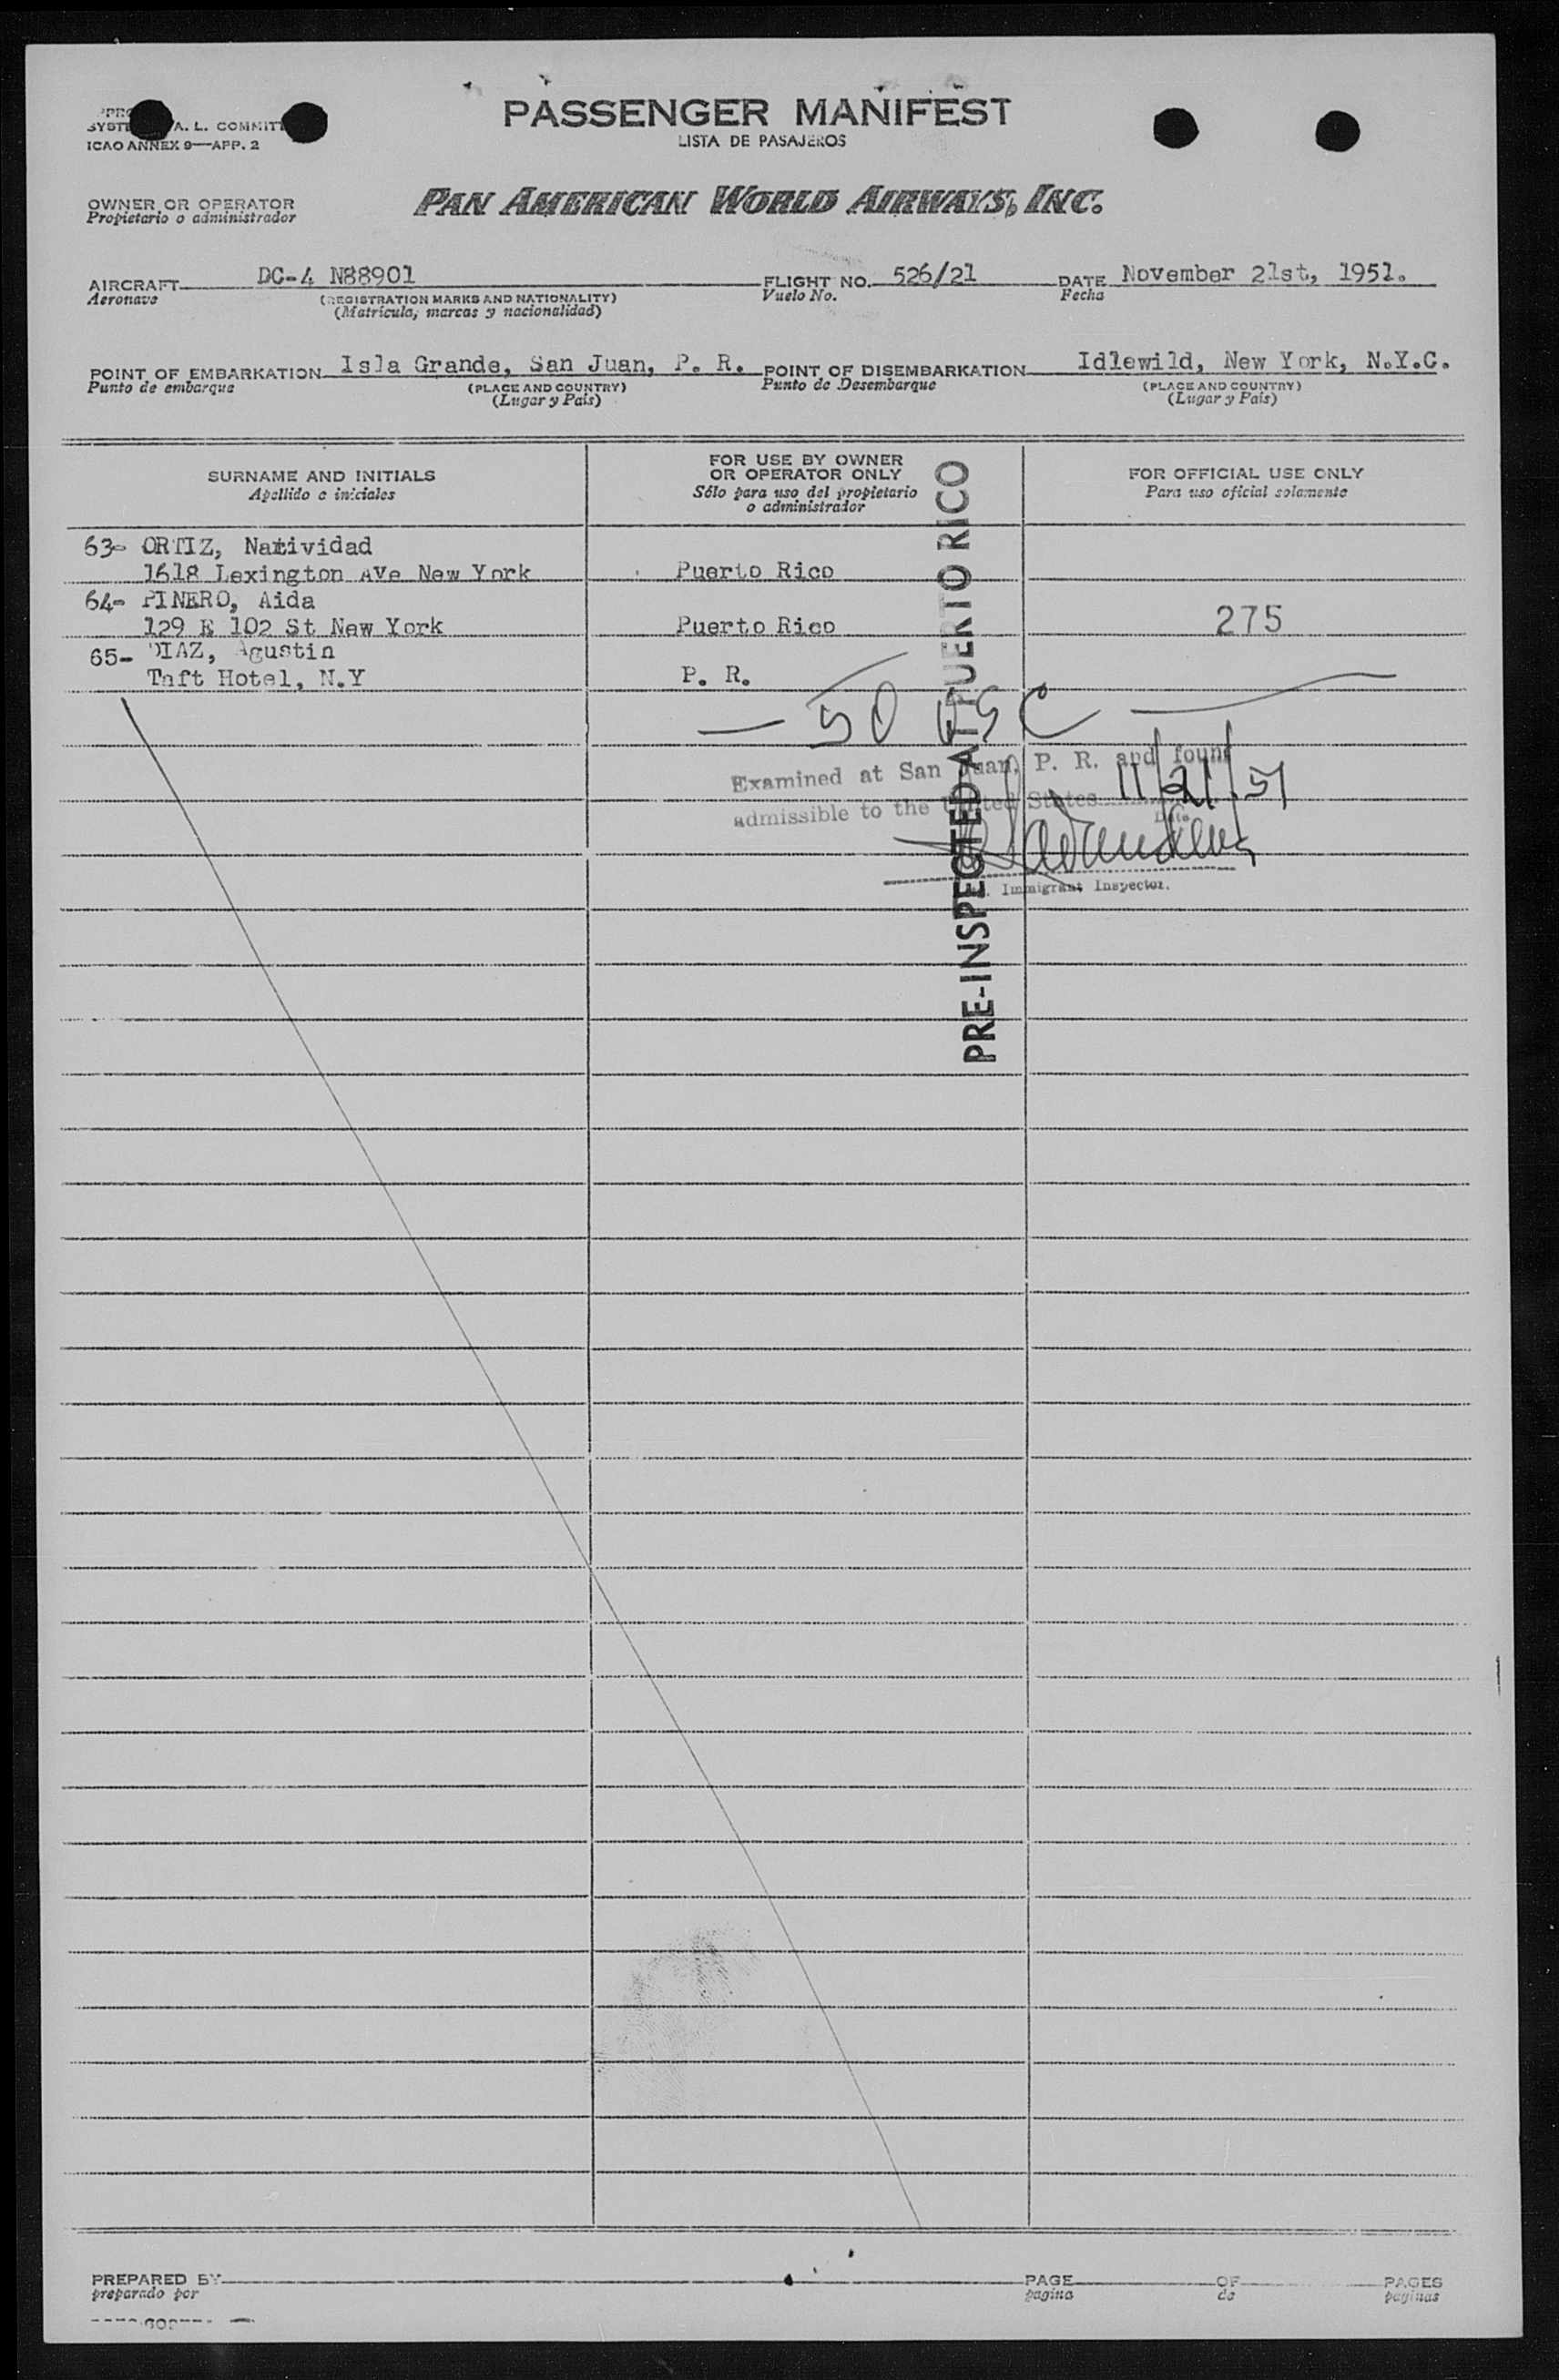 PASSENGER MANIFEST
LISTA DE PASAJEROS
A. L. COMMITT
ICAO ANNEX 9—APP. 2
OWNER OR OPERATOR
Propietario o administrador
PAN AMERICAN WORLD AIRWAYS, INC.
AIRCRAFT DC-4 N88901 FLIGHT NO. 526/21 DATE November 21st, 1951.
Aeronave (REGISTRATION MARKS AND NATIONALITY) Vuelo No. Fecha
(Matricula, marcas y nacionalidad)
POINT OF EMBARKATION Isla Grande, San Juan, P. R. POINT OF DISEMBARKATION Idlewild, New York, N.Y.C.
Punto de embarque (PLACE AND COUNTRY) Punto de Desembarque (PLACE AND COUNTRY)
(Lugar y País) (Lugar y País)
SURNAME AND INITIALS
Apellido e iniciales
FOR USE BY OWNER
OR OPERATOR ONLY
Sólo para uso del propietario
o administrador
FOR OFFICIAL USE ONLY
Para uso oficial solamente
63- ORTIZ, Natividad
1618 Lexington AVe New York Puerto Rico
64- PINERO, Aida
129 E 102 St New York Puerto Rico 275
65- DIAZ, Agustin
Taft Hotel, N.Y P. R.
PRE-INSPECTED AT PUERTO RICO
Examined at San Juan, P. R. and found
admissible to the United States 11/21/51
Date
Immigrant Inspector.
PREPARED BY PAGE OF PAGES
preparado por pagina de paginas